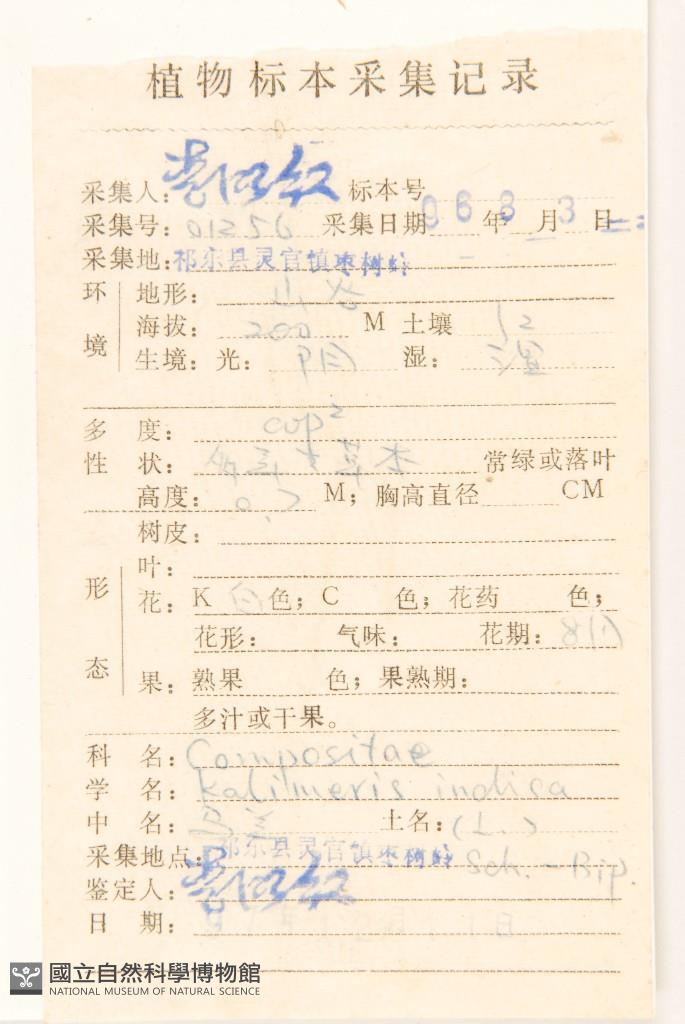 植物标本采集记录
采集人： 标本号
采集号：01256 采集日期 963年 月 3 日
采集地：祁东县灵官镇枣树岭
环境 地形：山谷
海拔：200 M 土壤 红
生境：光：阴 湿：湿
多度：cop²
性状：多年生草本 常绿或落叶
高度：0.7 M；胸高直径 CM
形态 树皮：
叶：
花：K 白色；C 色；花药 色；
花形： 气味： 花期：8月
果：熟果 色；果熟期：
多汁或干果。
科名：Compositae
学名：Kalimeris indica
中名：马兰 土名：(L.)
采集地点：祁东县灵官镇枣树岭 Sch.-Bip.
鉴定人：
日期： 日
國立自然科學博物館
NATIONAL MUSEUM OF NATURAL SCIENCE